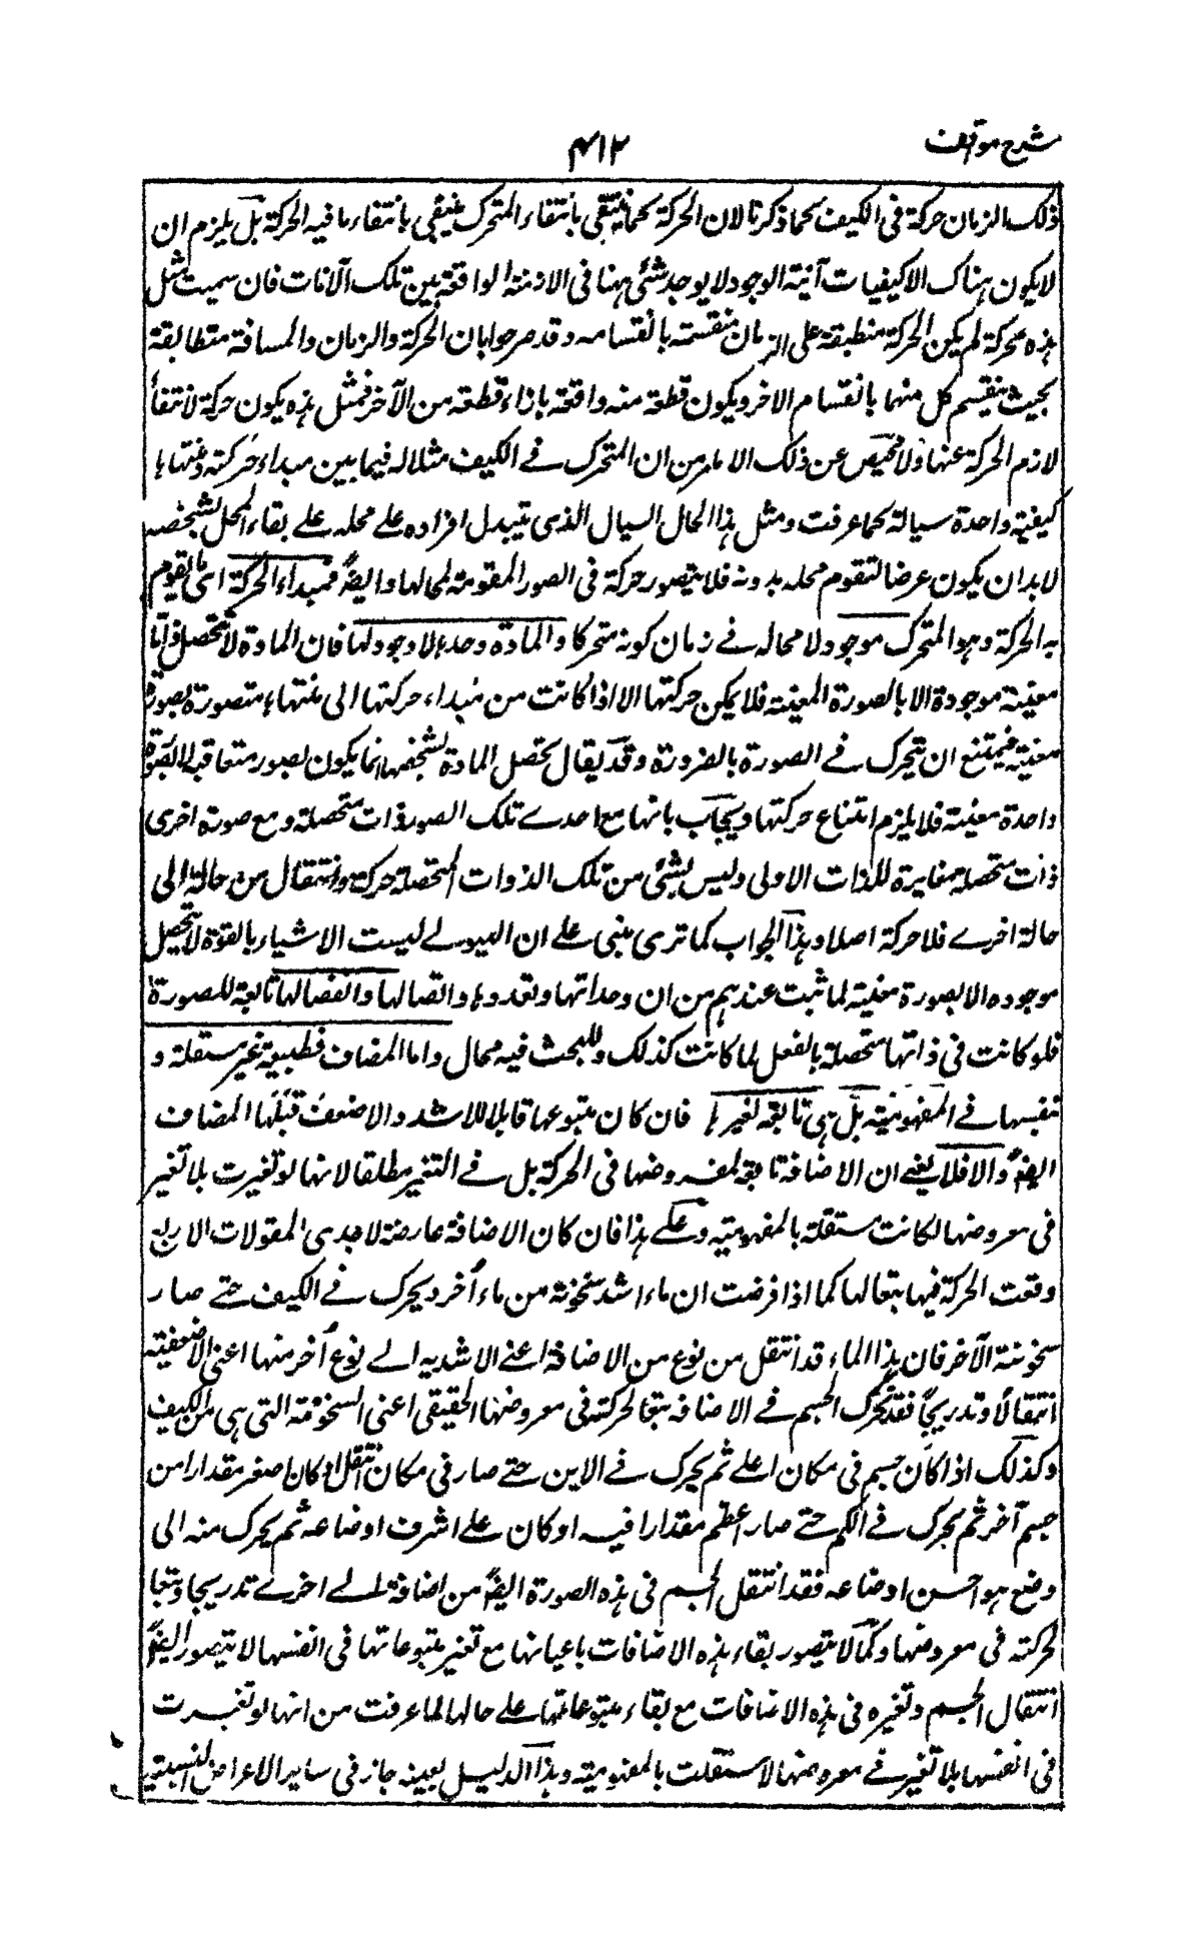 شرح مواقف
٤١٢
ذلك الزمان حركة فى الكيف كما ذكرنا لان الحركة كما تنتفى بانتفاء المتحرك ينتفى بانتفاء ما فيه الحركة بل يلزم ان
لا يكون هناك الا كيفيات آنية الوجود لا يوجد شئ منها فى الازمنة الواقعة بين تلك الآنات فان سميت مثل
هذه حركة لم يكن الحركة منطبقة على الزمان منقسمة بانقسامه وقد صرحوا بان الحركة والزمان والمسافة متطابقة
بحيث ينقسم كل منها بانقسام الاخر ويكون قطعة منه واقعة بازاء قطعة من الآخر فمثل هذه يكون حركة لانتفاء
لازم الحركة عنها ولا مخيص عن ذلك الا من ان المتحرك فے الكيف مثلا له فيما بين مبداء حركته ومنتهاها
كيفية واحدة سيالة كما عرفت ومثل هذا الحال السيال الذى يتبدل افراده علے محله علے بقاء المحل بشخصه
لا بد ان يكون عرضا لتقوم محله بدونه فلا يتصور حركة فى الصور المقومة لمحالها وايضً فمبداء الحركة اى ما يقوم
به الحركة وهو المتحرك موجود لا محاله فے زمان كونه متحركا والمادة وحدها لا وجود لها فان المادة لا تتحصل ذاتا
معينة موجودة الا بالصورة المعينة فلا يمكن حركتها الا اذا كانت من مبداء حركتها الى منتهاها متصورة بصورة
معينة فيمتنع ان يتحرك فے الصورة بالضرورة وقد يقال تحصل المادة بشخصها انما يكون بصور متعاقبة لا بصورة
واحدة معينة فلا يلزم امتناع حركتها ويجاب بانها مع احدے تلك الصور ذات متحصلة ومع صورة اخرى
ذات متحصلة مغايرة للذات الاولى وليس لشئ من تلك الذوات المتحصلة حركة وانتقال من حالة الى
حالة اخرے فلا حركة اصلا وهذا الجواب كما ترى مبنى علے ان الهيولے ليست الاشياء بالقوة لا تتحصل
موجوده الا بصورة معينة لما ثبت عندهم من ان وحداتها وتعددها واتصالها وانفصالها تابعة للصورة
فلو كانت فى ذاتها متحصلة بالفعل لما كانت كذلك وللبحث فيه مجال واما المضاف فطبيعة غير مستقلة و
بنفسها فے المفهومية بل هى تابعة لغيرها فان كان متبوعها قابلا للاشد والاضعف قبلها المضاف
ايضً والا فلا يعنے ان الاضافة تابعة لمعروضها فى الحركة بل فے التغير مطلقا لانها لو تغيرت بلا تغير
فى معروضها لكانت مستقلة بالمفهومية وعلے هذا فان كان الاضافة عارضة لاحدى المقولات الاربع
وقعت الحركة فيها تبعا لها كما اذا فرضت ان ماء اشد سخونة من ماء آخر ويحرك فے الكيف حتے صار
سخونة الآخر فان هذا الماء قد انتقل من نوع من الاضافة اعنے الاشدية الے نوع آخر منها اعنى الاضعفية
انتقالا وتدريجا فقد تحرك الجسم فے الاضافة تبعا لحركته فى معروضها الحقيقى اعنى السخونة التى هى من الكيف
وكذلك اذا كان جسم فى مكان اعلے ثم يحرك فے الاين حتے صار فى مكان اسفل او كان اصغر مقدارا من
جسم آخر ثم يحرك فے الكم حتے صار اعظم مقدارا فيه او كان علے اشرف اوضاعه ثم يحرك منه الى
وضع هو احسن اوضاعه فقد انتقل الجسم فى هذه الصورة ايضً من اضافة الے اخرے تدريجا وتبعا
لحركته فى معروضها وكما لا يتصور بقاء هذه الاضافات باعيانها مع تغير متبوعاتها فى انفسها لا يتصور ايضً
انتقال الجسم وتغيره فى هذه الاضافات مع بقاء متبوعاتها علے حالها لما عرفت من انها لو تغيرت
فى انفسها بلا تغير فے معروضها لاستقلت بالمفهومية وهذا الدليل بعينه جاز فى ساير الاعراض النسبية